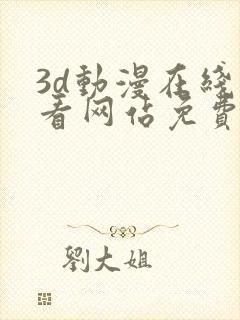 3d動漫在綫
看网佔免費
劉大姐